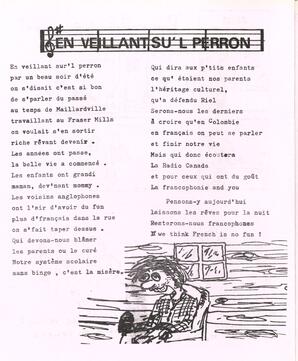 EN VEILLANT SU'L PERRON
En veillant sur'l perron
par un beau soir d'été
on s'disait c'est si bon
de s'parler du passé
au temps de Maillardville
travaillant au Fraser Mills
on voulait s'en sortir
riche rêvant devenir.
Les années ont passé,
la belle vie a commencé.
Les enfants ont grandi
maman, dev'nant mommy.
Les voisins anglophones
ont l'air d'avoir du fun
plus d'français dans la rue
on s'fait taper dessus.
Qui devons-nous blâmer
les parents ou le curé
Notre système scolaire
sans bingo, c'est la misère.
Qui dira aux p'tits enfants
ce qu'étaient nos parents
l'héritage culturel,
qu'a défendu Riel
Serons-nous les derniers
à croire qu'en Colombie
en français on peut se parler
et finir notre vie
Mais qui donc écoutera
La Radio Canada
et pour ceux qui ont du goût
La francophonie and you
Pensons-y aujourd'hui
laissons les rêves pour la nuit
Resterons-nous francophones
If we think French is no fun !